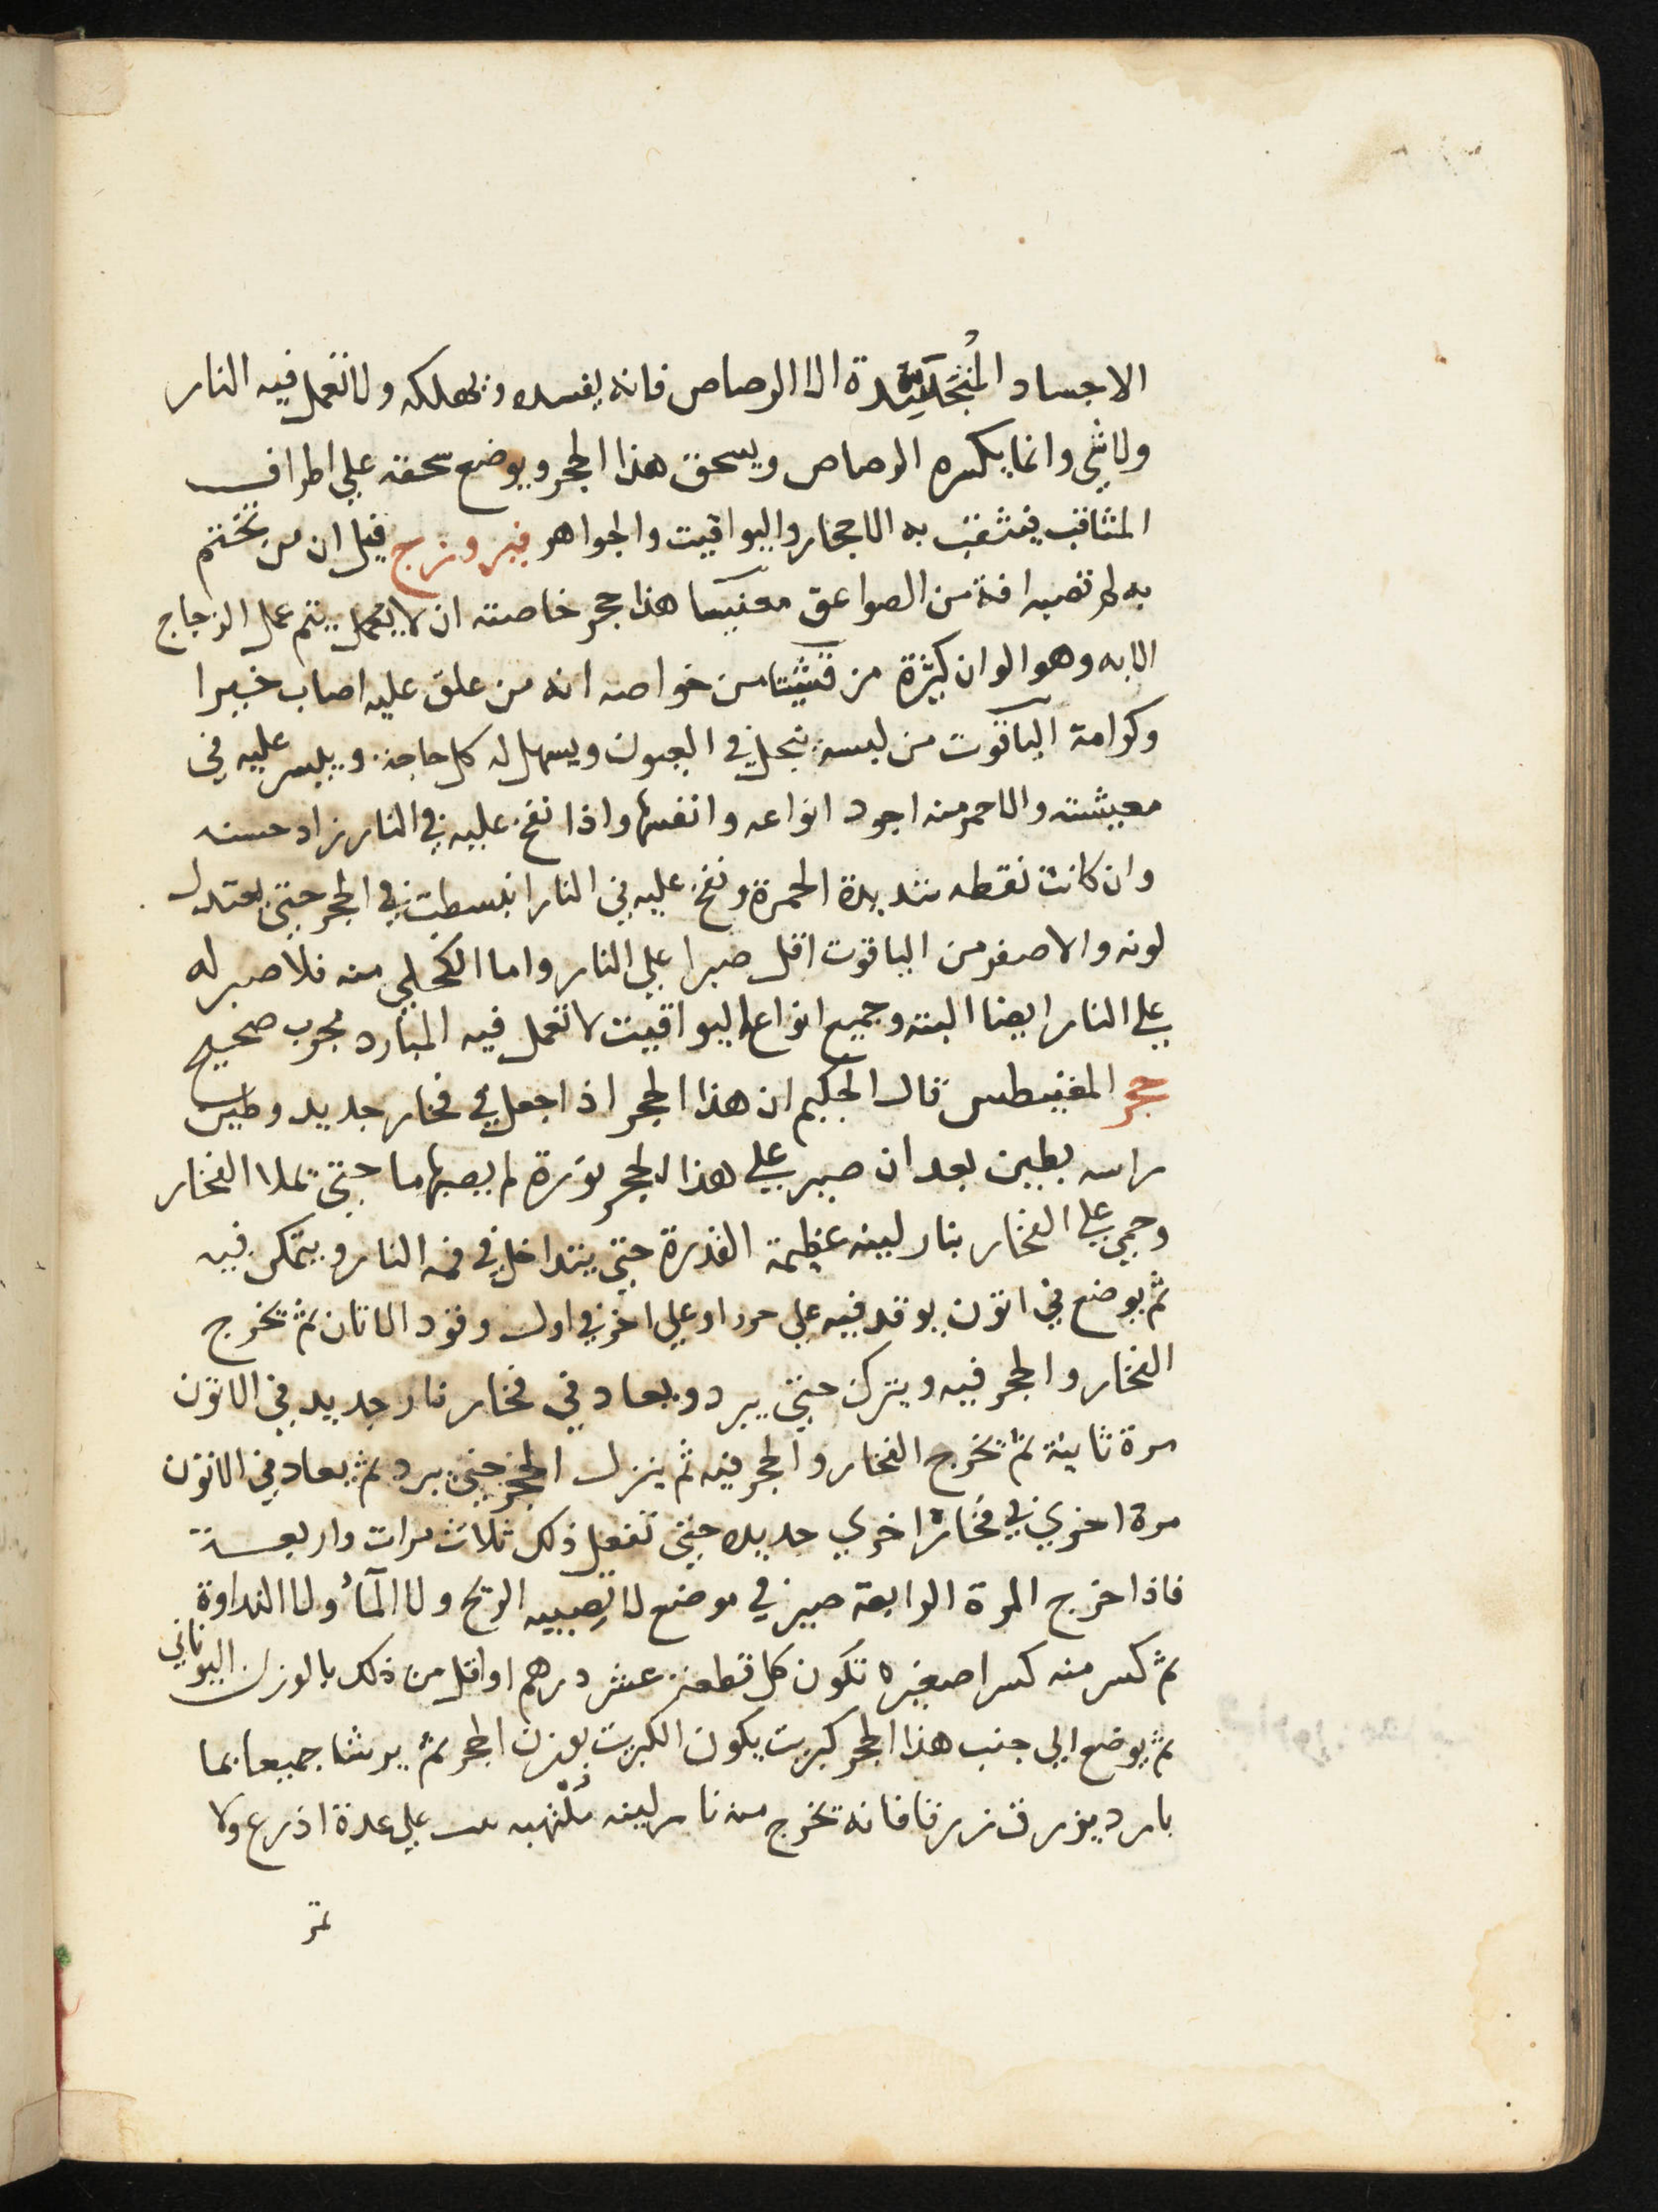 الاجساد المُتَجَسِّدة الا الرصاص فانه يفسده ويهلكه ولا تعمل فيه النار
ولا شي وانما يكسره الرصاص ويسحق هذا الحجر ويوضع سحقه علي اطراف
المثاقب فيثقب به الاحجار واليواقيت والجواهر فيروزج قيل ان من تختم
به لم تصبه افة من الصواعق مغنيسا هذا حجر خاصته ان لا يعمل يتم عمل الزجاج
الا به وهو الوان كثيرة مرقشيثا من خواصه انه من علق عليه اصاب خيرا
وكرامة الياقوت من لبسه نبحل في العيون ويسهل له كل حاجة وييسر عليه في
معيشته والاحمر منه اجود انواعه وانفسها واذا نفخ عليه في النار زاد حسنه
وان كانت نقطه شديدة الحمرة ونفخ عليه في النار انبسطت في الحجر حتي يعتدل
لونه والاصفر من الياقوت اقل صبرا علي النار واما الكحلي منه فلا صبر له
علي النار ايضا البته وجميع انواع اليواقيت لا تعمل فيه المبارد مجرب صحيح
حجر المغنيطس قال الحكيم ان هذا الحجر اذا جعل في فخار جديد وطين
راسه بطين بعد ان صير علي هذا الحجر نورة لم يصبها ما حتي تملا الفخار
وحمي علي الفخار بنار لينه عظيمة القدرة حتي يتداخل في فمه النار ويتمكن فيه
ثم يوضع في اتون يوقد فيه علي حرد او علي اخر في اول وقود الاتان ثم تخرج
الفخار والحجر فيه ويترك حتي يبرد ويعاد في فخار نار جديد في الاتون
مرة ثانية ثم تخرج الفخار والحجر فيه ثم ينزل الحجر حتي يبرد ثم يعاد في الاتون
مرة اخري في فخارة اخري جديده حتي تفعل ذلك ثلاث مرات واربعة
فاذا خرج المرة الرابعة صير في موضع لا تصيبه الريح ولا المآء ولا النداوة
ثم كسر منه كسرا صغيره تكون كل قطعة عشر درهم او اقل من ذلك بالوزن اليوناني
ثم يوضع الي جنب هذا الحجر كبريت يكون الكبريت بوزن الحجر ثم يرشا جميعا بما
بارد يزرق زرقا فانه تخرج منه نار لينه مُلْتهبه علي عدة اذرع ولا
تمر